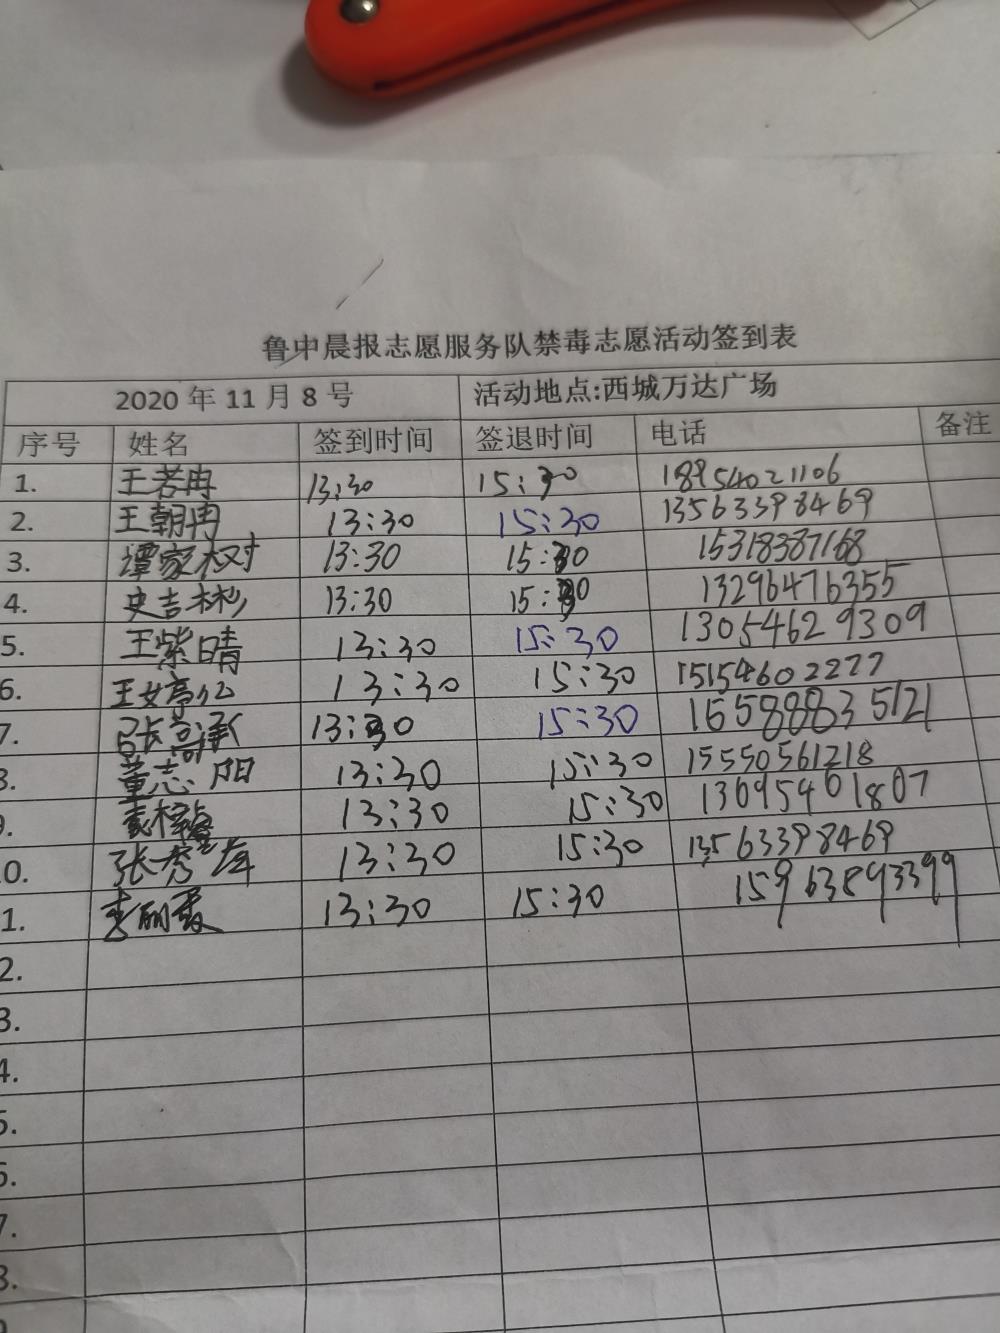 鲁中晨报志愿服务队禁毒志愿活动签到表
2020 年 11 月 8 号 活动地点:西城万达广场
序号 姓名 签到时间 签退时间 电话 备注
1. 王若冉 13:30 15:30 18954021106
2. 王朝冉 13:30 15:30 13563398469
3. 谭家树 13:30 15:30 15318387168
4. 史吉彬 13:30 15:30 13296476355
5. 王紫晴 13:30 15:30 13054629309
6. 王婷亿 13:30 15:30 15154602277
7. 13:30 15:30 16588835121
8. 董志阳 13:30 15:30 15550561218
9. 13:30 15:30 13695401807
0. 张秀 13:30 15:30 13563398469
1. 李丽霞 13:30 15:30 15963893399
2.
3.
4.
5.
6.
7.
8.